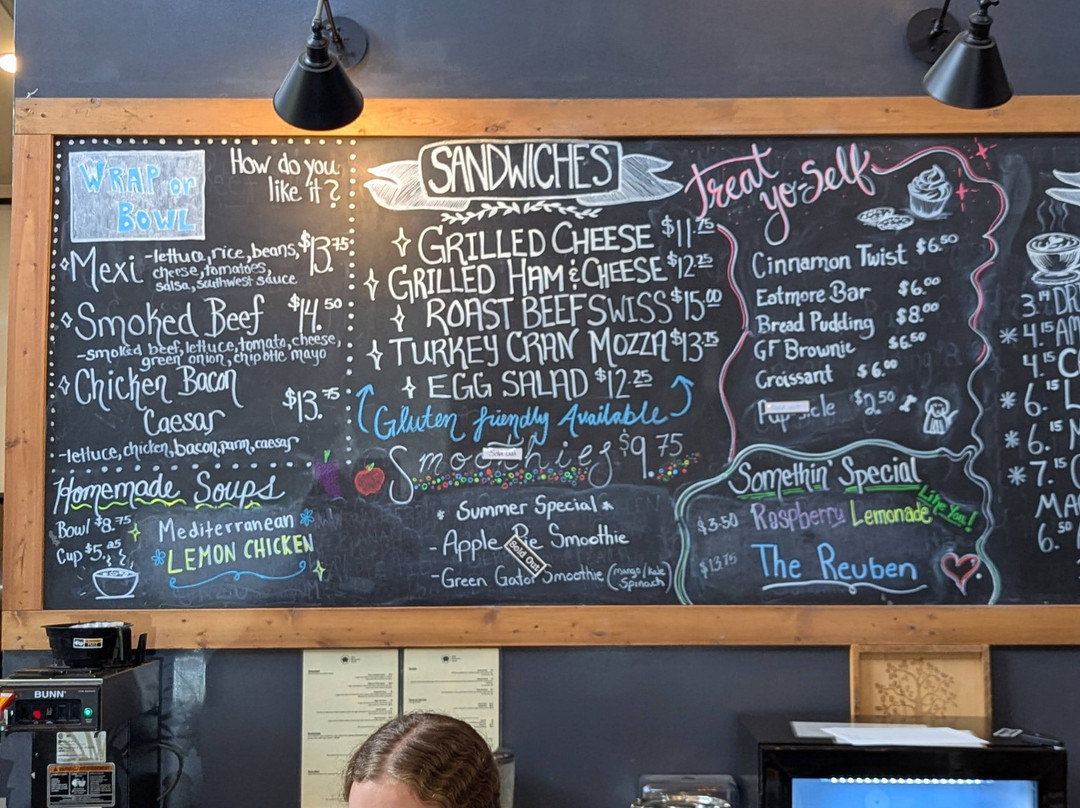 WRAP or
BOWL
How do you
like it?
Mexi -lettuce, rice, beans, $13.75
cheese, tomatoes,
salsa, southwest sauce
Smoked Beef $14.50
-smoked beef, lettuce, tomato, cheese,
green onion, chipotle mayo
Chicken Bacon
Caesar $13.75
-lettuce, chicken, bacon, parm, caesar
Homemade Soups
Bowl $8.75
Cup $5.25
Mediterranean
LEMON CHICKEN
SANDWICHES
GRILLED CHEESE $11.75
GRILLED HAM & CHEESE $12.25
ROAST BEEF SWISS $15.00
TURKEY CRAN MOZZA $13.75
EGG SALAD $12.25
Gluten friendly Available
Smoothies $9.75
Sold Out
Summer Special
- Apple Pie Smoothie
Sold Out
- Green Gator Smoothie (mango/kale
Spinach)
treat
yo-self
Cinnamon Twist $6.50
Eatmore Bar $6.00
Bread Pudding $8.00
GF Brownie $6.50
Croissant $6.00
$2.50
Somethin' Special
Like You!
$3.50 Raspberry Lemonade
$13.75 The Reuben
3.14 DR
* 4.15 AM
4.15 C
* 6.15 L
* 6.15 M
* 7.15 C
MA
6.50
BUNN